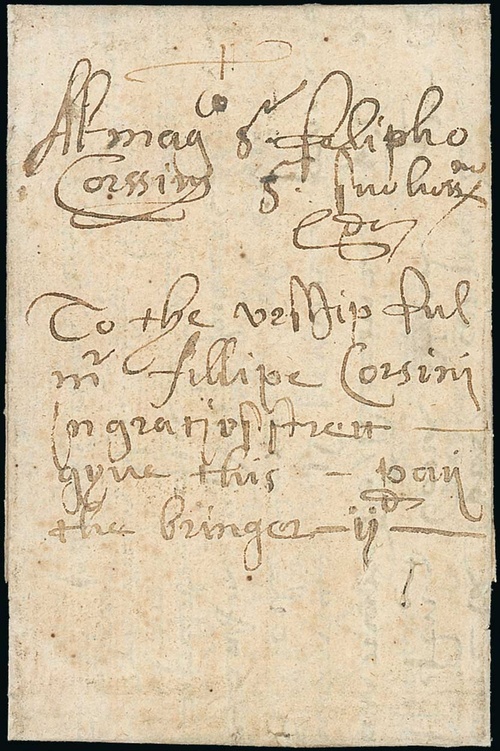 Al mag^co S^r felipho
Corssiny S^r suo hon^mo
To the vrshipful
m^r fillipe Corsini
in gratius strett
gyue this - paij
the bringer - ij^d